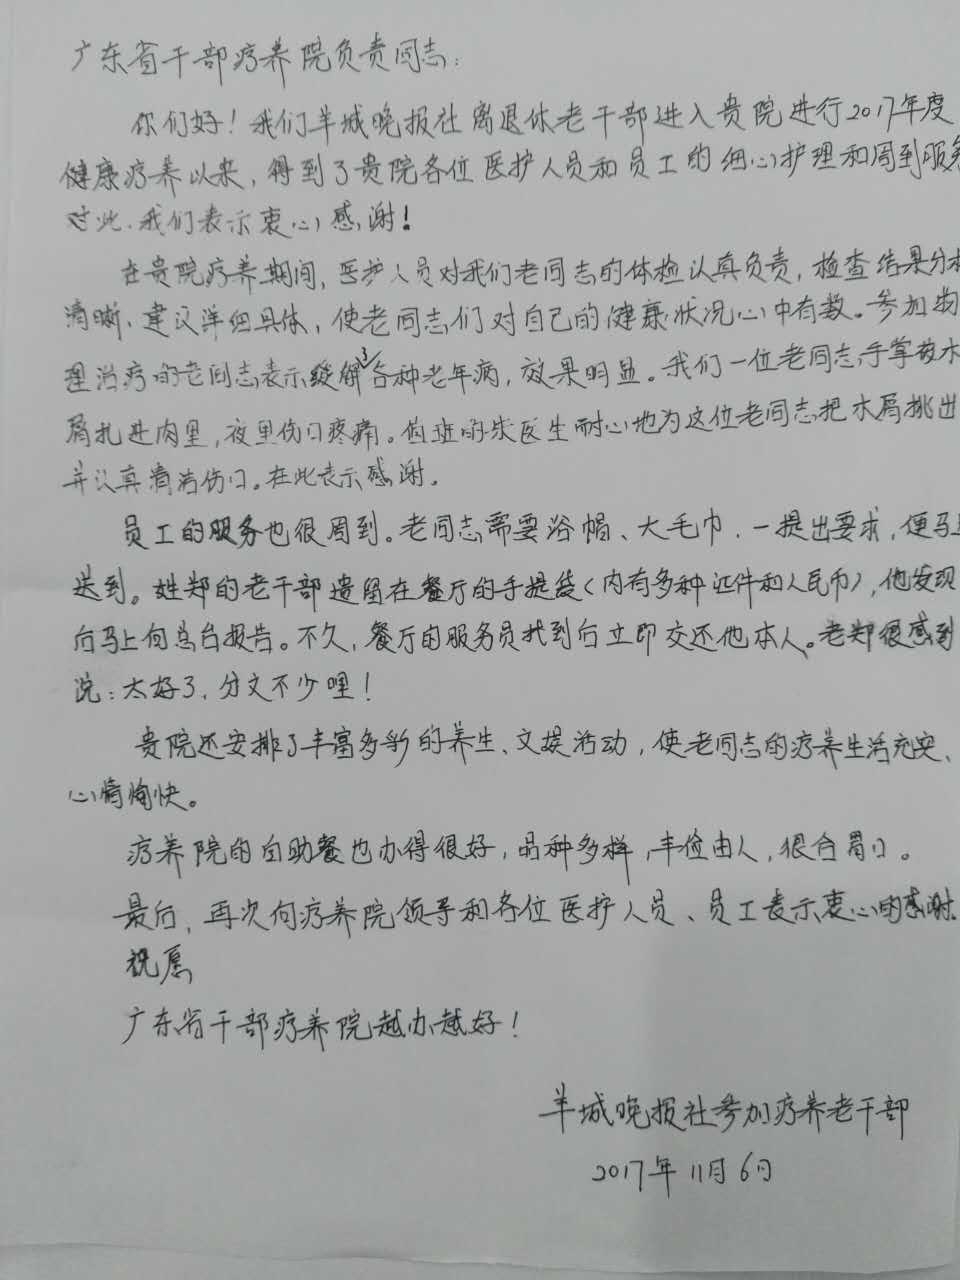 广东省干部疗养院负责同志：
你们好！我们羊城晚报社离退休老干部进入贵院进行2017年度
健康疗养以来，得到了贵院各位医护人员和员工的细心护理和周到服务
对此，我们表示衷心感谢！
在贵院疗养期间，医护人员对我们老同志的体检认真负责，检查结果分析
清晰，建议详细具体，使老同志们对自己的健康状况心中有数。参加物
理治疗的老同志表示缓解了各种老年病，效果明显。我们一位老同志手掌被木
屑扎进肉里，夜里伤口疼痛。值班的朱医生耐心地为这位老同志把木屑挑出
并认真清洁伤口。在此表示感谢。
员工的服务也很周到。老同志需要浴帽、大毛巾，一提出要求，便马上
送到。姓郑的老干部遗留在餐厅的手提袋（内有多种证件和人民币），他发现
后马上向总台报告。不久，餐厅的服务员找到后立即交还他本人。老郑很感到
说：太好了，分文不少哩！
贵院还安排了丰富多彩的养生、文娱活动，使老同志的疗养生活充实、
心情愉快。
疗养院的自助餐也办得很好，品种多样，丰俭由人，很合胃口。
最后，再次向疗养院领导和各位医护人员、员工表示衷心的感谢。
祝愿
广东省干部疗养院越办越好！
羊城晚报社参加疗养老干部
2017年11月6日